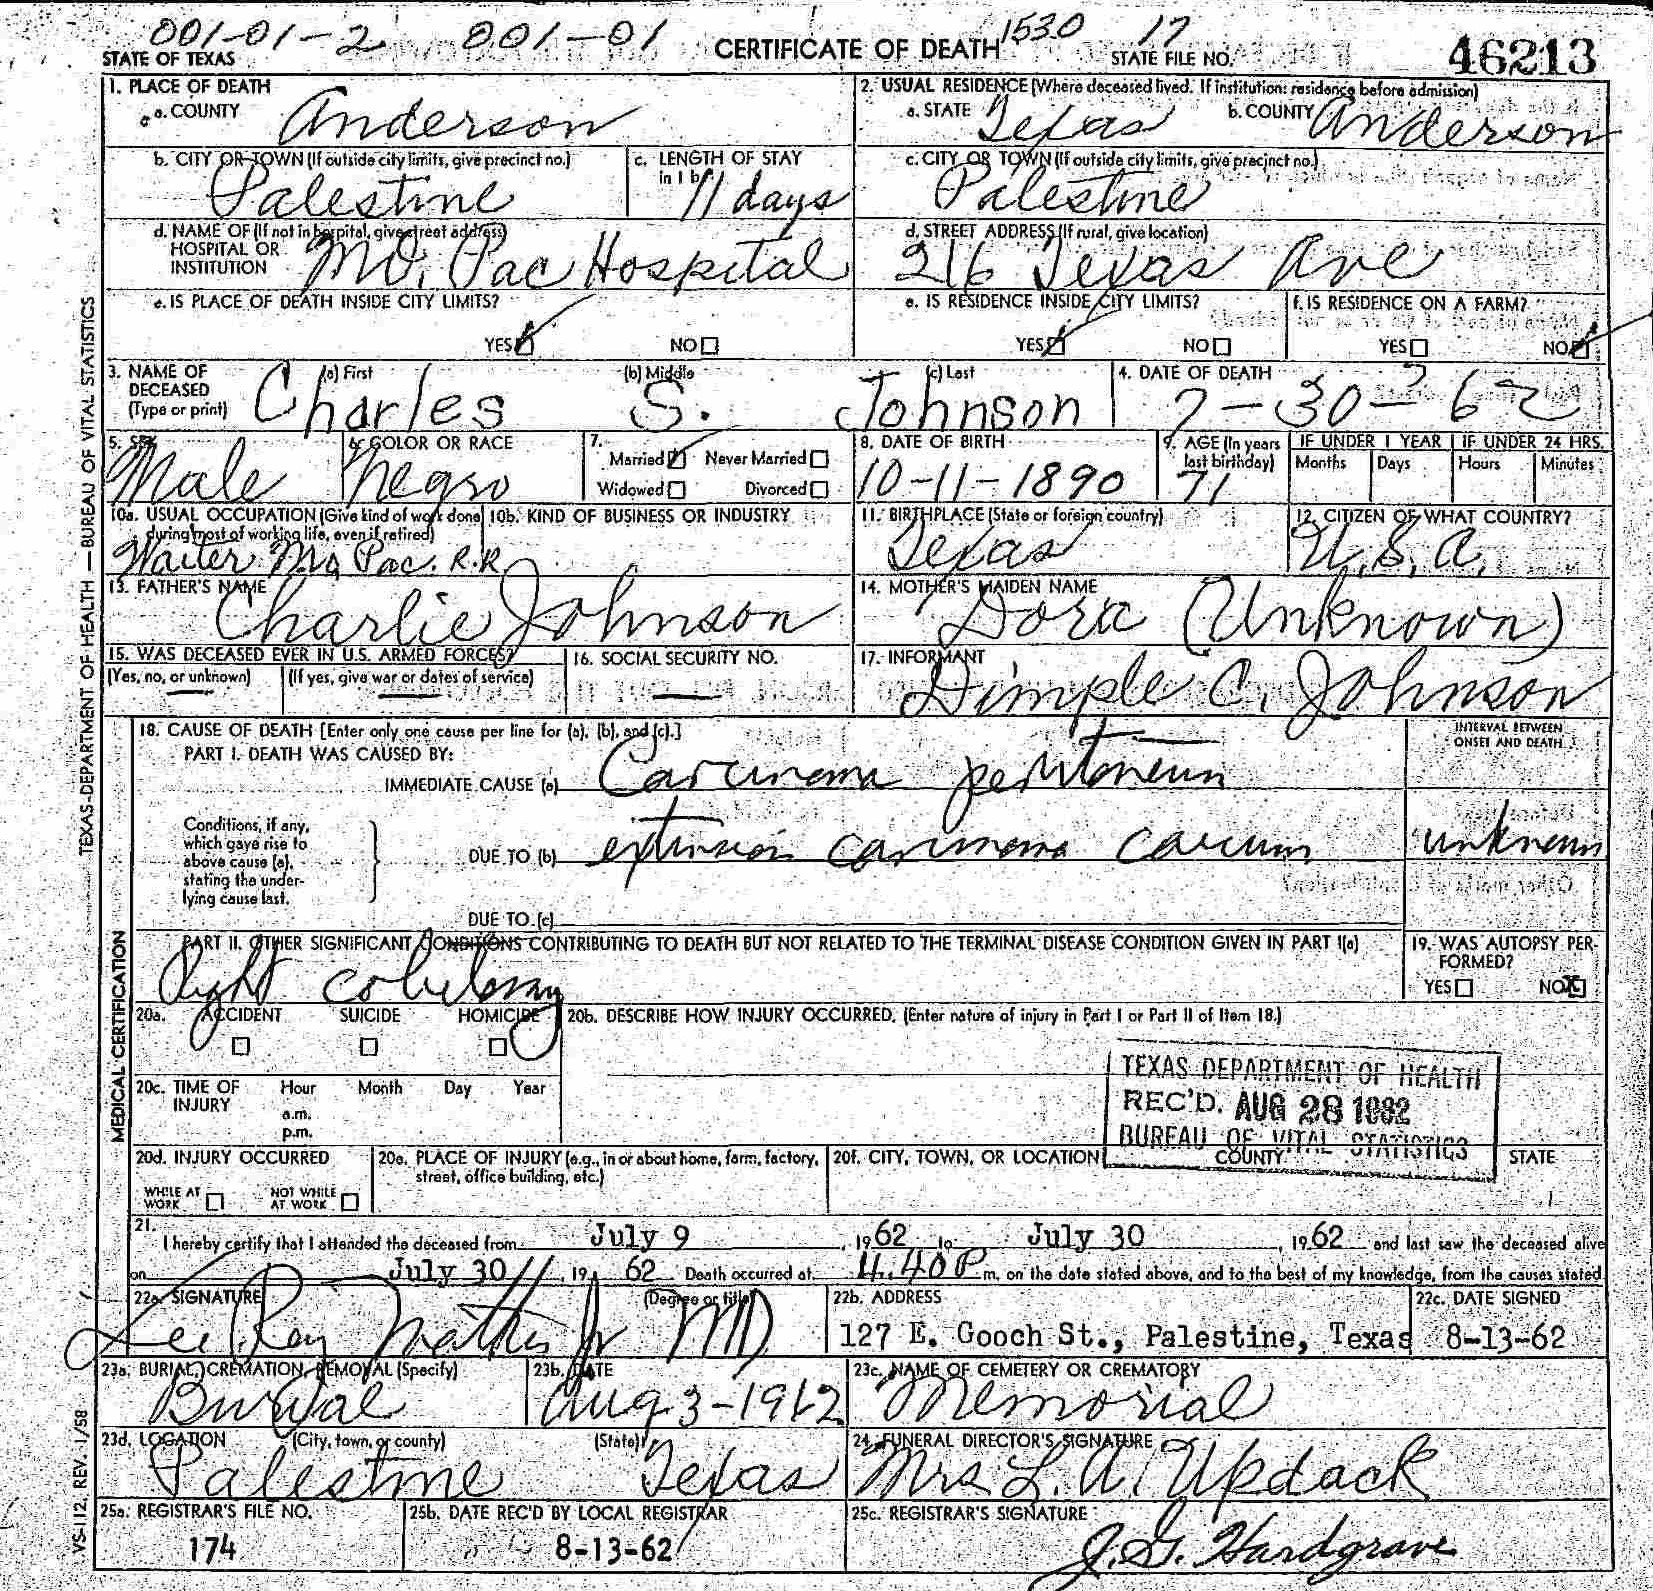 001-01-2 001-01 CERTIFICATE OF DEATH 1530 17
STATE OF TEXAS STATE FILE NO. 46213
1. PLACE OF DEATH
a. COUNTY Anderson
2. USUAL RESIDENCE (Where deceased lived. If institution: residence before admission)
a. STATE Texas b. COUNTY Anderson
b. CITY OR TOWN (If outside city limits, give precinct no.)
Palestine
c. LENGTH OF STAY
in 1 b.
11 days
c. CITY OR TOWN (If outside city limits, give precinct no.)
Palestine
d. NAME OF (If not in hospital, give street address)
HOSPITAL OR
INSTITUTION
Mo. Pac Hospital
d. STREET ADDRESS (If rural, give location)
216 Texas Ave
e. IS PLACE OF DEATH INSIDE CITY LIMITS?
YES NO
e. IS RESIDENCE INSIDE CITY LIMITS?
YES NO
f. IS RESIDENCE ON A FARM?
YES NO
3. NAME OF
DECEASED
(Type or print)
(a) First (b) Middle (c) Last
Charles S. Johnson
4. DATE OF DEATH
7-30-62
5. SEX
Male
6. COLOR OR RACE
Negro
7.
Married Never Married
Widowed Divorced
8. DATE OF BIRTH
10-11-1890
9. AGE (In years
last birthday)
71
IF UNDER 1 YEAR IF UNDER 24 HRS.
Months Days Hours Minutes
10a. USUAL OCCUPATION (Give kind of work done
during most of working life, even if retired)
10b. KIND OF BUSINESS OR INDUSTRY
Waiter Mo Pac. R.R.
11. BIRTHPLACE (State or foreign country)
Texas
12. CITIZEN OF WHAT COUNTRY?
U.S.A.
13. FATHER'S NAME
Charlie Johnson
14. MOTHER'S MAIDEN NAME
Dora (Unknown)
15. WAS DECEASED EVER IN U.S. ARMED FORCES?
(Yes, no, or unknown) (If yes, give war or dates of service)
16. SOCIAL SECURITY NO.
17. INFORMANT
Dimple C. Johnson
18. CAUSE OF DEATH [Enter only one cause per line for (a), (b), and (c).]
INTERVAL BETWEEN
ONSET AND DEATH
PART I. DEATH WAS CAUSED BY:
IMMEDIATE CAUSE (a) Carcinoma peritoneum
Conditions, if any,
which gave rise to
above cause (a),
stating the under-
lying cause last.
DUE TO (b) extension carcinoma caecum unknown
DUE TO (c)
PART II. OTHER SIGNIFICANT CONDITIONS CONTRIBUTING TO DEATH BUT NOT RELATED TO THE TERMINAL DISEASE CONDITION GIVEN IN PART I(a)
Right
19. WAS AUTOPSY PER-
FORMED?
YES NO X
20a. ACCIDENT SUICIDE HOMICIDE
20b. DESCRIBE HOW INJURY OCCURRED. (Enter nature of injury in Part I or Part II of Item 18.)
20c. TIME OF
INJURY
Hour Month Day Year
a.m.
p.m.
TEXAS DEPARTMENT OF HEALTH
REC'D. AUG 28 1962
BUREAU OF VITAL STATISTICS
20d. INJURY OCCURRED
WHILE AT
WORK
NOT WHILE
AT WORK
20e. PLACE OF INJURY (e.g., in or about home, farm, factory,
street, office building, etc.)
20f. CITY, TOWN, OR LOCATION COUNTY STATE
21.
I hereby certify that I attended the deceased from July 9, 1962 to July 30, 1962 and last saw the deceased alive
on July 30, 1962 Death occurred at 4.40P m, on the date stated above, and to the best of my knowledge, from the causes stated
22a. SIGNATURE (Degree or title)
Lee Roy Mathis Jr MD
22b. ADDRESS
127 E. Gooch St., Palestine, Texas
22c. DATE SIGNED
8-13-62
23a. BURIAL, CREMATION, REMOVAL (Specify)
Burial
23b. DATE
Aug 3-1962
23c. NAME OF CEMETERY OR CREMATORY
Memorial
23d. LOCATION (City, town, or county) (State)
Palestine Texas
24. FUNERAL DIRECTOR'S SIGNATURE
Mrs L. A. Updack
25a. REGISTRAR'S FILE NO.
174
25b. DATE REC'D BY LOCAL REGISTRAR
8-13-62
25c. REGISTRAR'S SIGNATURE
J. G. Hardgrave
TEXAS DEPARTMENT OF HEALTH — BUREAU OF VITAL STATISTICS
MEDICAL CERTIFICATION
VS-112, REV. 1/58